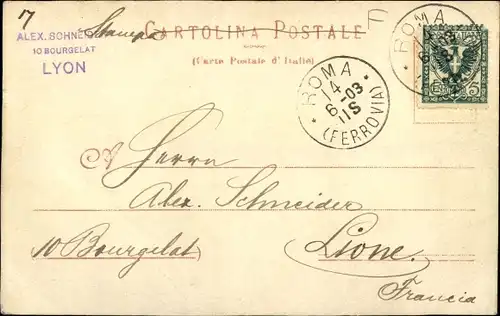 7
Stampe
CARTOLINA POSTALE
(Carte Postale d'Italie)
ALEX. SCHNEI
10 BOURGELAT
LYON
ROMA
14
6-03
11S
(FERROVIA)
ROMA
5
A Herrn
Alex. Schneider
10 Bourgelat
Lione.
Francia